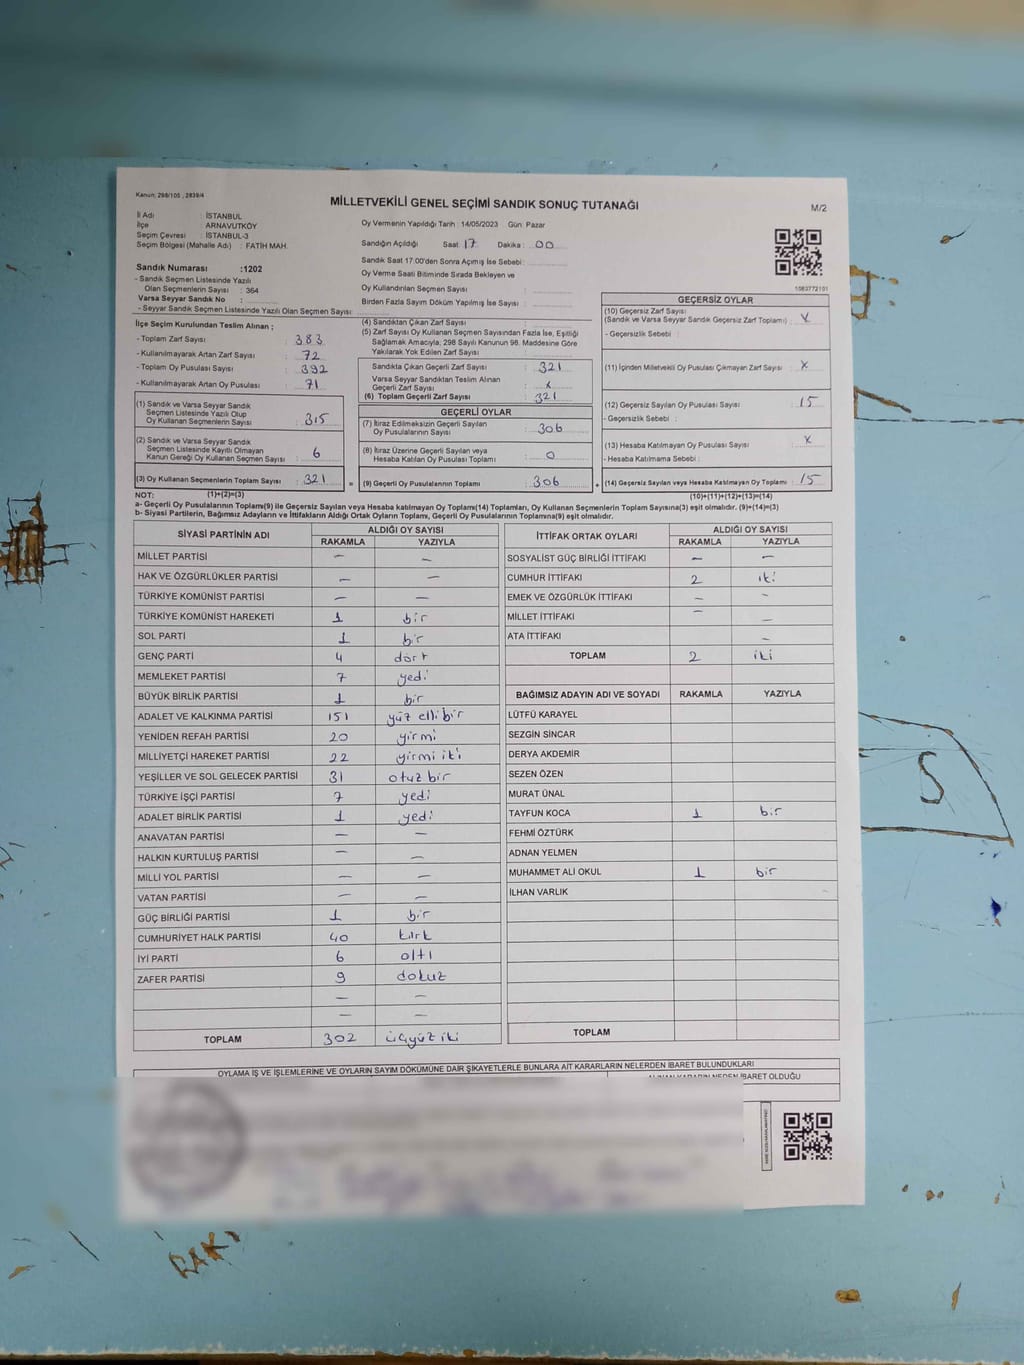 Kanun: 298/105 , 2839/4
MİLLETVEKİLİ GENEL SEÇİMİ SANDIK SONUÇ TUTANAĞI
M/2
İl Adı : İSTANBUL
İlçe : ARNAVUTKÖY
Seçim Çevresi : İSTANBUL-3
Seçim Bölgesi (Mahalle Adı) : FATİH MAH.
Sandık Numarası :1202
- Sandık Seçmen Listesinde Yazılı
Olan Seçmenlerin Sayısı : 364
Varsa Seyyar Sandık No :
- Seyyar Sandık Seçmen Listesinde Yazılı Olan Seçmen Sayısı:
Oy Vermenin Yapıldığı Tarih : 14/05/2023 Gün: Pazar
Sandığın Açıldığı Saat: 17 Dakika : 00
Sandık Saat 17.00'den Sonra Açımış İse Sebebi:
Oy Verme Saati Bitiminde Sırada Bekleyen ve
Oy Kullandırılan Seçmen Sayısı :
Birden Fazla Sayım Döküm Yapılmış İse Sayısı :
1083772101
İlçe Seçim Kurulundan Teslim Alınan ;
- Toplam Zarf Sayısı : 383
- Kullanılmayarak Artan Zarf Sayısı : 72
- Toplam Oy Pusulası Sayısı : 392
- Kullanılmayarak Artan Oy Pusulası : 71
(1) Sandık ve Varsa Seyyar Sandık
Seçmen Listesinde Yazılı Olup
Oy Kullanan Seçmenlerin Sayısı : 315
(2) Sandık ve Varsa Seyyar Sandık
Seçmen Listesinde Kayıtlı Olmayan
Kanun Gereği Oy Kullanan Seçmen Sayısı : 6
(3) Oy Kullanan Seçmenlerin Toplam Sayısı : 321
(4) Sandıktan Çıkan Zarf Sayısı :
(5) Zarf Sayısı Oy Kullanan Seçmen Sayısından Fazla İse, Eşitliği
Sağlamak Amacıyla; 298 Sayılı Kanunun 98. Maddesine Göre
Yakılarak Yok Edilen Zarf Sayısı :
Sandıkta Çıkan Geçerli Zarf Sayısı : 321
Varsa Seyyar Sandıktan Teslim Alınan
Geçerli Zarf Sayısı : x
(6) Toplam Geçerli Zarf Sayısı : 321
GEÇERLİ OYLAR
(7) İtiraz Edilmeksizin Geçerli Sayılan
Oy Pusulalarının Sayısı : 306
(8) İtiraz Üzerine Geçerli Sayılan veya
Hesaba Katılan Oy Pusulası Toplamı : 0
= (9) Geçerli Oy Pusulalarının Toplamı : 306 +
GEÇERSİZ OYLAR
(10) Geçersiz Zarf Sayısı
(Sandık ve Varsa Seyyar Sandık Geçersiz Zarf Toplamı) : x
- Geçersizlik Sebebi :
(11) İçinden Milletvekili Oy Pusulası Çıkmayan Zarf Sayısı : x
(12) Geçersiz Sayılan Oy Pusulası Sayısı : 15
- Geçersizlik Sebebi :
(13) Hesaba Katılmayan Oy Pusulası Sayısı : x
- Hesaba Katılmama Sebebi :
(14) Geçersiz Sayılan veya Hesaba Katılmayan Oy Toplamı : 15
NOT: (1)+(2)=(3) (10)+(11)+(12)+(13)=(14)
a- Geçerli Oy Pusulalarının Toplamı(9) ile Geçersiz Sayılan veya Hesaba katılmayan Oy Toplamı(14) Toplamları, Oy Kullanan Seçmenlerin Toplam Sayısına(3) eşit olmalıdır. (9)+(14)=(3)
b- Siyasi Partilerin, Bağımsız Adayların ve İttifakların Aldığı Ortak Oyların Toplamı, Geçerli Oy Pusulalarının Toplamına(9) eşit olmalıdır.
SİYASİ PARTİNİN ADI ALDIĞI OY SAYISI
RAKAMLA YAZIYLA
MİLLET PARTİSİ — —
HAK VE ÖZGÜRLÜKLER PARTİSİ — —
TÜRKİYE KOMÜNİST PARTİSİ — —
TÜRKİYE KOMÜNİST HAREKETİ 1 bir
SOL PARTİ 1 bir
GENÇ PARTİ 4 dört
MEMLEKET PARTİSİ 7 yedi
BÜYÜK BİRLİK PARTİSİ 1 bir
ADALET VE KALKINMA PARTİSİ 151 yüz elli bir
YENİDEN REFAH PARTİSİ 20 yirmi
MİLLİYETÇİ HAREKET PARTİSİ 22 yirmi iki
YEŞİLLER VE SOL GELECEK PARTİSİ 31 otuz bir
TÜRKİYE İŞÇİ PARTİSİ 7 yedi
ADALET BİRLİK PARTİSİ 1 yedi
ANAVATAN PARTİSİ — —
HALKIN KURTULUŞ PARTİSİ — —
MİLLİ YOL PARTİSİ — —
VATAN PARTİSİ — —
GÜÇ BİRLİĞİ PARTİSİ 1 bir
CUMHURİYET HALK PARTİSİ 40 kırk
İYİ PARTİ 6 altı
ZAFER PARTİSİ 9 dokuz
— —
— —
TOPLAM 302 üçyüz iki
İTTİFAK ORTAK OYLARI ALDIĞI OY SAYISI
RAKAMLA YAZIYLA
SOSYALİST GÜÇ BİRLİĞİ İTTİFAKI — —
CUMHUR İTTİFAKI 2 iki
EMEK VE ÖZGÜRLÜK İTTİFAKI — —
MİLLET İTTİFAKI — —
ATA İTTİFAKI —
TOPLAM 2 iki
BAĞIMSIZ ADAYIN ADI VE SOYADI RAKAMLA YAZIYLA
LÜTFÜ KARAYEL
SEZGİN SİNCAR
DERYA AKDEMİR
SEZEN ÖZEN
MURAT ÜNAL
TAYFUN KOCA 1 bir
FEHMİ ÖZTÜRK
ADNAN YELMEN
MUHAMMET ALİ OKUL 1 bir
İLHAN VARLIK
TOPLAM
OYLAMA İŞ VE İŞLEMLERİNE VE OYLARIN SAYIM DÖKÜMÜNE DAİR ŞİKAYETLERLE BUNLARA AİT KARARLARIN NELERDEN İBARET BULUNDUKLARI
ALINAN KARARIN NEDEN İBARET OLDUĞU
S
RAKI